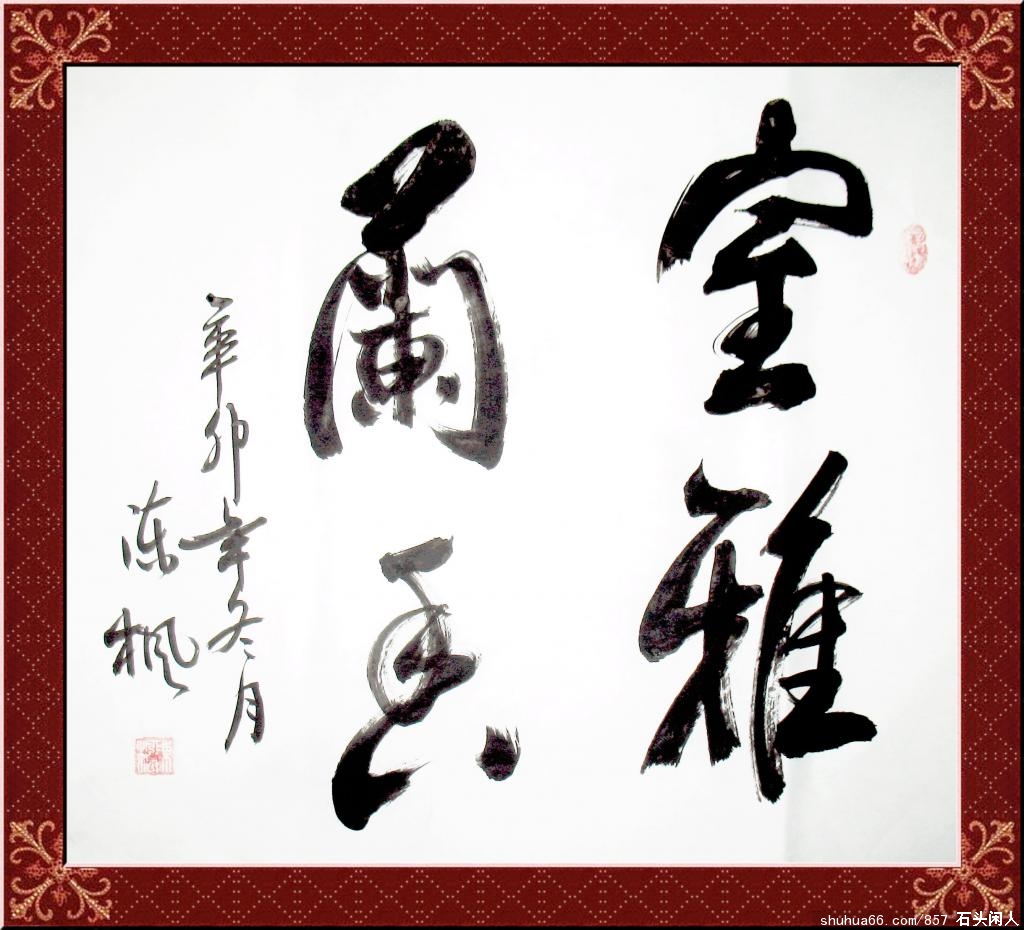 室雅
蘭香
辛卯年冬月
陈枫
shuhua66.com/857 石头闲人